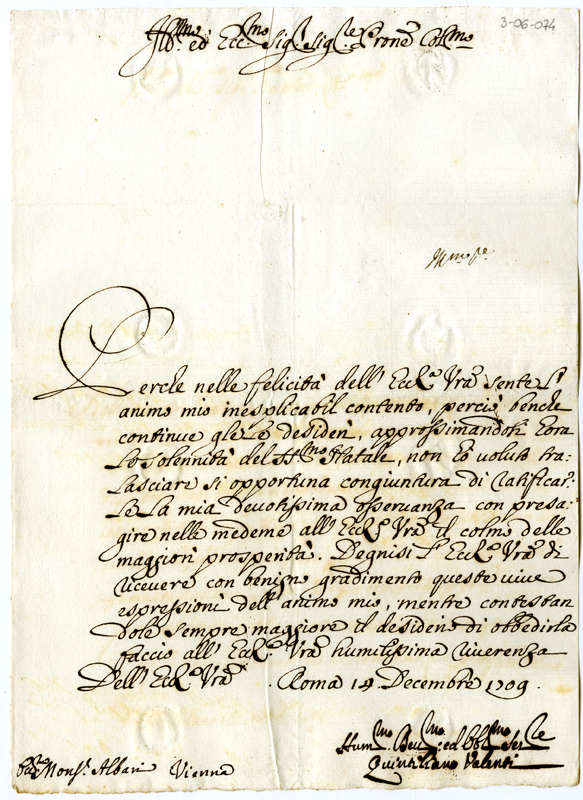 3-06-074
Ill.mo ed Ecc.mo Sig.r Sig.re Prone Col.mo
Perche nelle felicità dell' Ecc.a Vra sente l'
animo mio inesplicabil contento, perciò benche
continue gle le desideri, approssimandosi hora
la solennità del SS.mo Natale, non hò voluto tra:
lasciare si opportuna congiuntura di ratificar:
le la mia devotissima osservanza con presa:
gire nelle medeme all' Ecc.a Vra il colmo delle
maggiori prosperità. Degnisi l' Ecc.a Vra di
ricevere con benigno gradimento queste vive
espressioni dell' animo mio, mentre contestan
dole sempre maggiore il desiderio di obbedirla
faccio all' Ecc.a Vra humilissima riverenza
Dell' Ecc.a Vra. Roma 14 Decembre 1709.
Hum.mo Dev.mo ed Obl.mo Ser.re
Quintiliano Valenti
Mons.r Albani Vienna